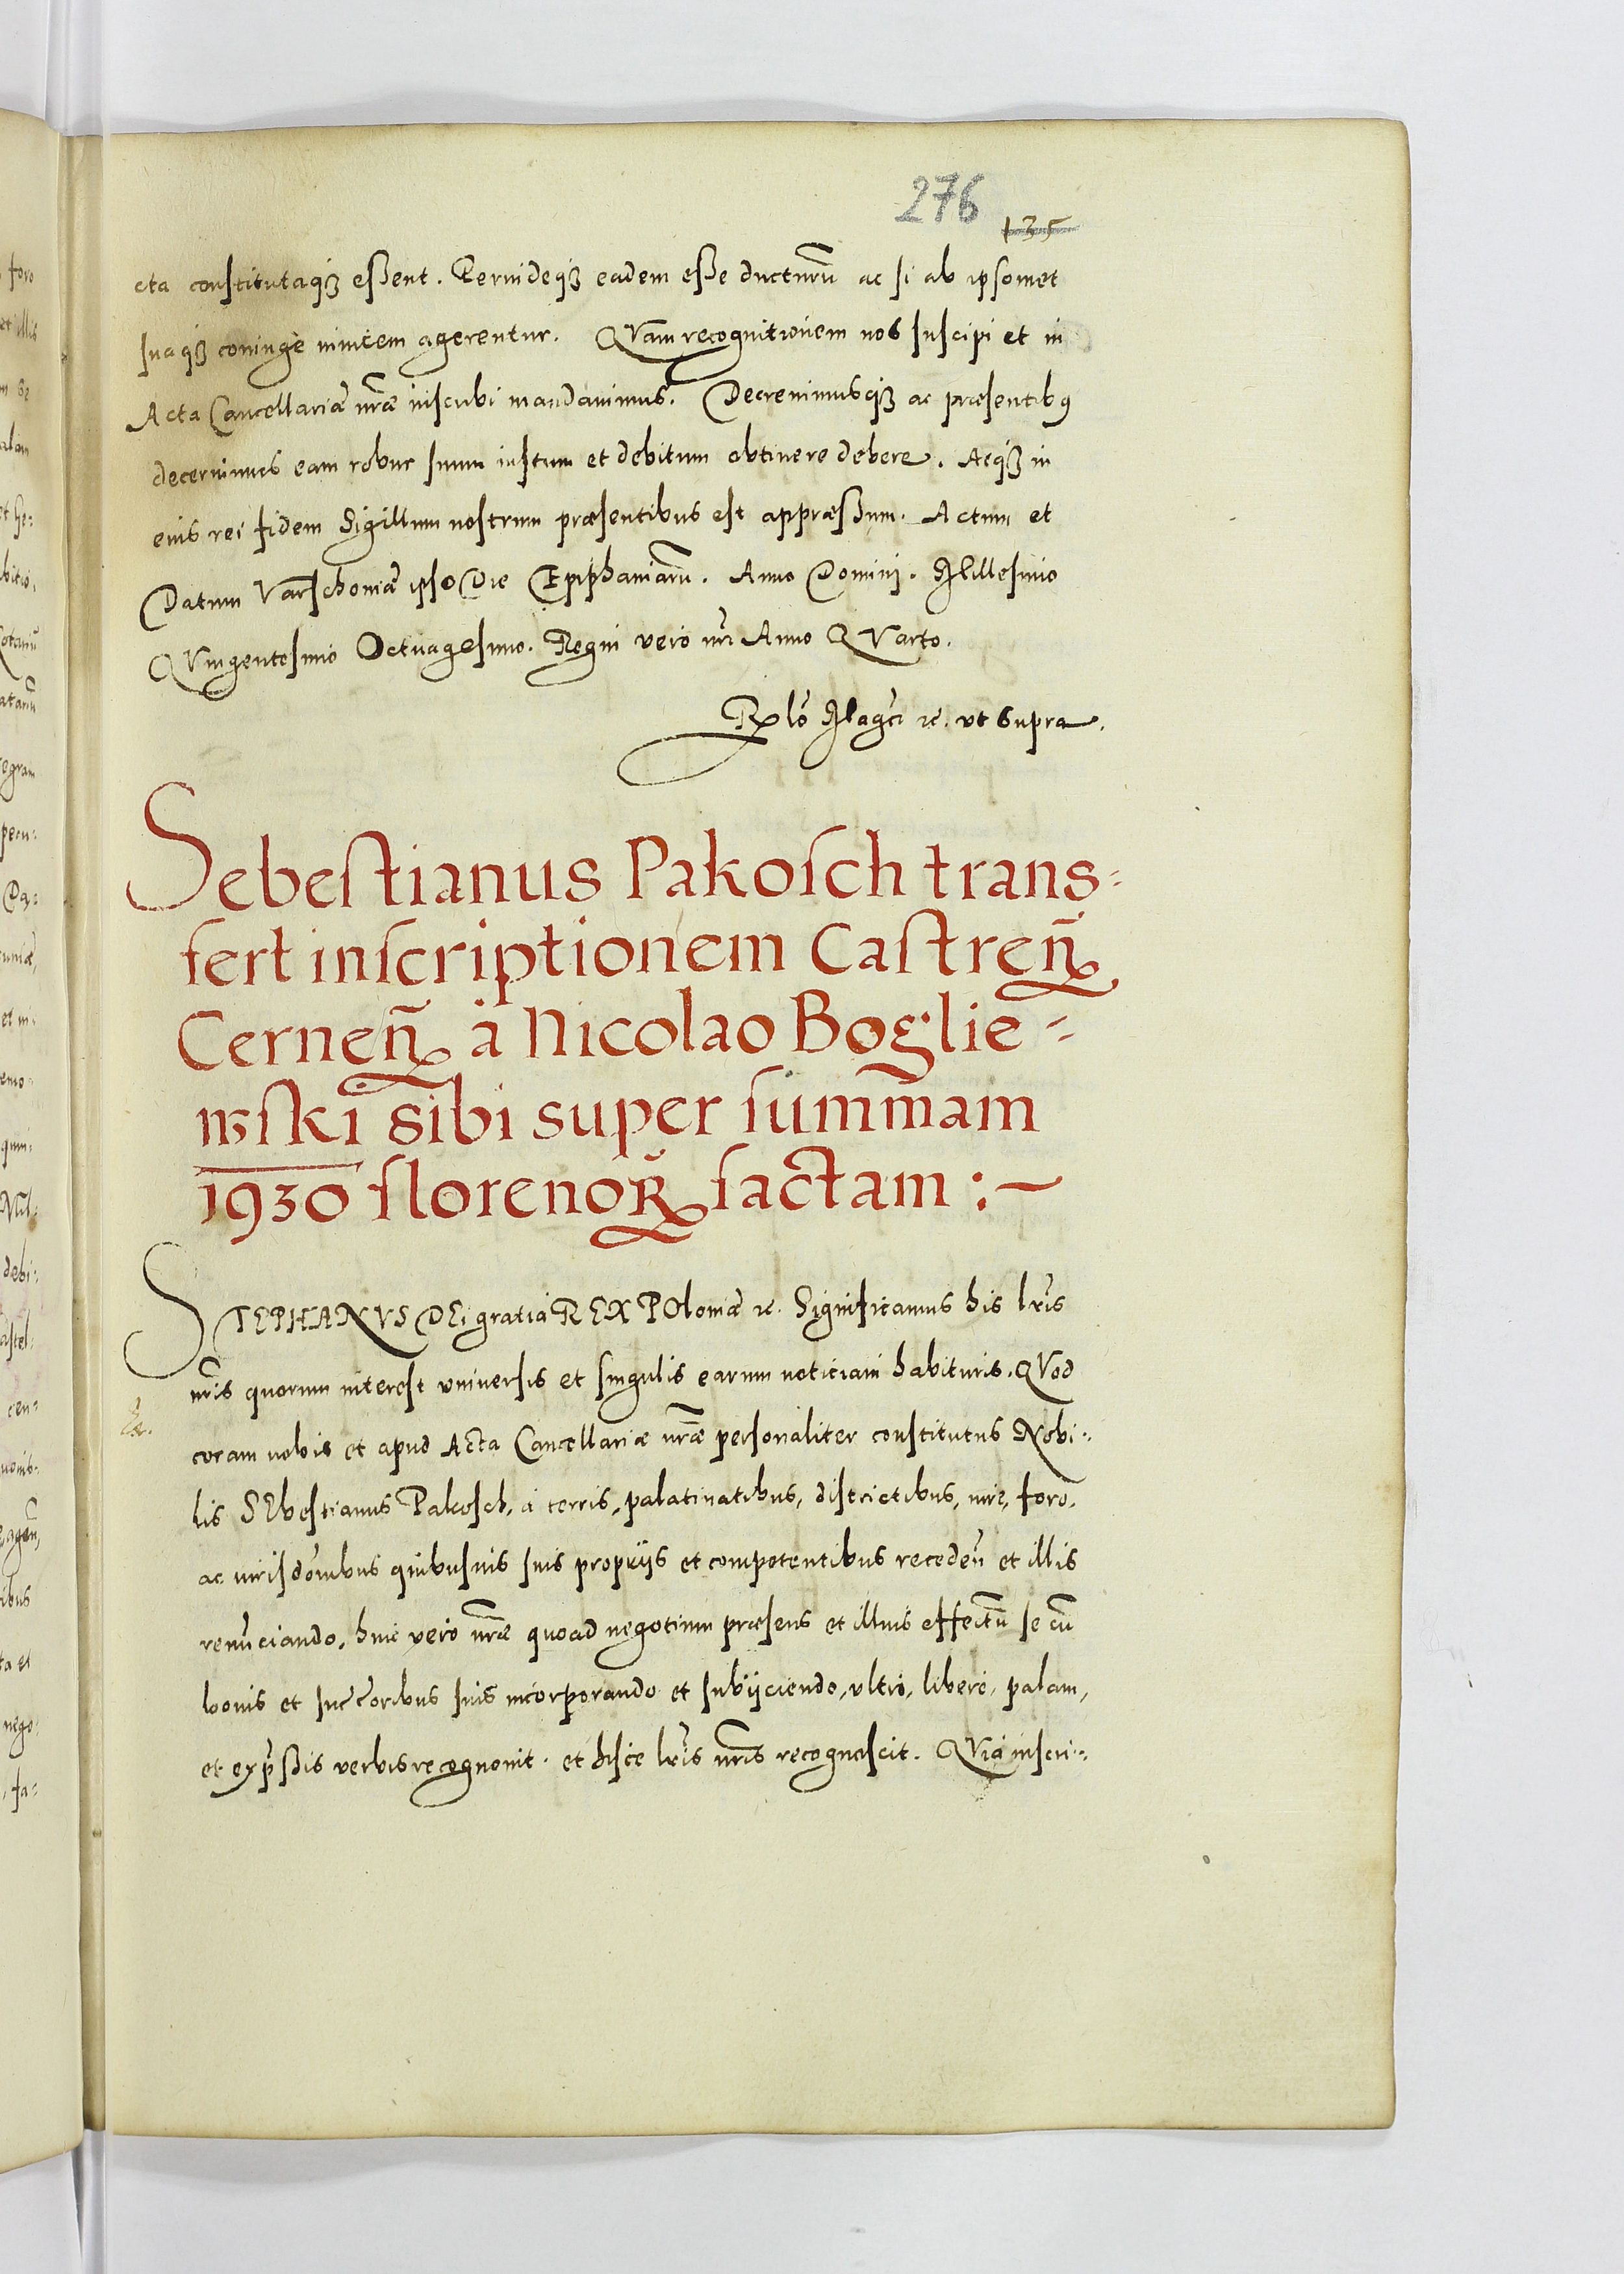 276
135
cta constitutaq3 essent. Perindeq3 eadem esse ducturũ ac si ab ipsomet
suaq3 coniuge inuicem agerentur. QVam recognitionem nos suscipi et in
Acta Cancellariæ nr̃æ inscribi mandauimus. Decreuimusq3 ac præsentib9
decernimus eam robur suum iustum et debitum obtinere debere. Atq3 in
eius rei fidem Sigillum nostrum præsentibus est appræssum. Actum et
Datum Varschouiæ ipso Die Epiphaniarũ. Anno Domini. Millesimo
QVingentesimo Octuagesimo. Regni vero nr̃i Anno QVarto.
Rlo Magci ꝛc. vt supra.
Sebestianus Pakosch trans=
fert inscriptionem Castreñ
Cerneñ à Nicolao Boglie=
wski sibi super summam
1930 florenoꝝ factam:~
STEPHANVS DEi gratia REX POloniæ ꝛc. Significamus his lr̃is
nr̃is quorum interest vniuersis et singulis earum noticiam habituris. QVod
coram nobis et apud Acta Cancellariæ nr̃æ personaliter constitutus Nobi=
lis SEbestianus Pakosch, à terris, palatinatibus, districtibus, iure, foro,
ac iurisdõnibus quibusuis suis proprijs et competentibus recedeñ et illis
renũciando, huic vero nr̃æ quoad negotium præsens et illius effectũ se cũ
bonis et succoribus suis incorporando et subijciendo, vltro, libere, palam,
et expr̃ssis verbis recognouit. et hisce lr̃is nr̃is recognoscit. QVia inscri=